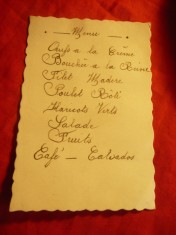 - Menu -
Oeufs a la Crême
Bouchée a la Reine
Filet Madere
Poulet Rôti
Haricots Verts
Salade
Fruits
Café - Calvados